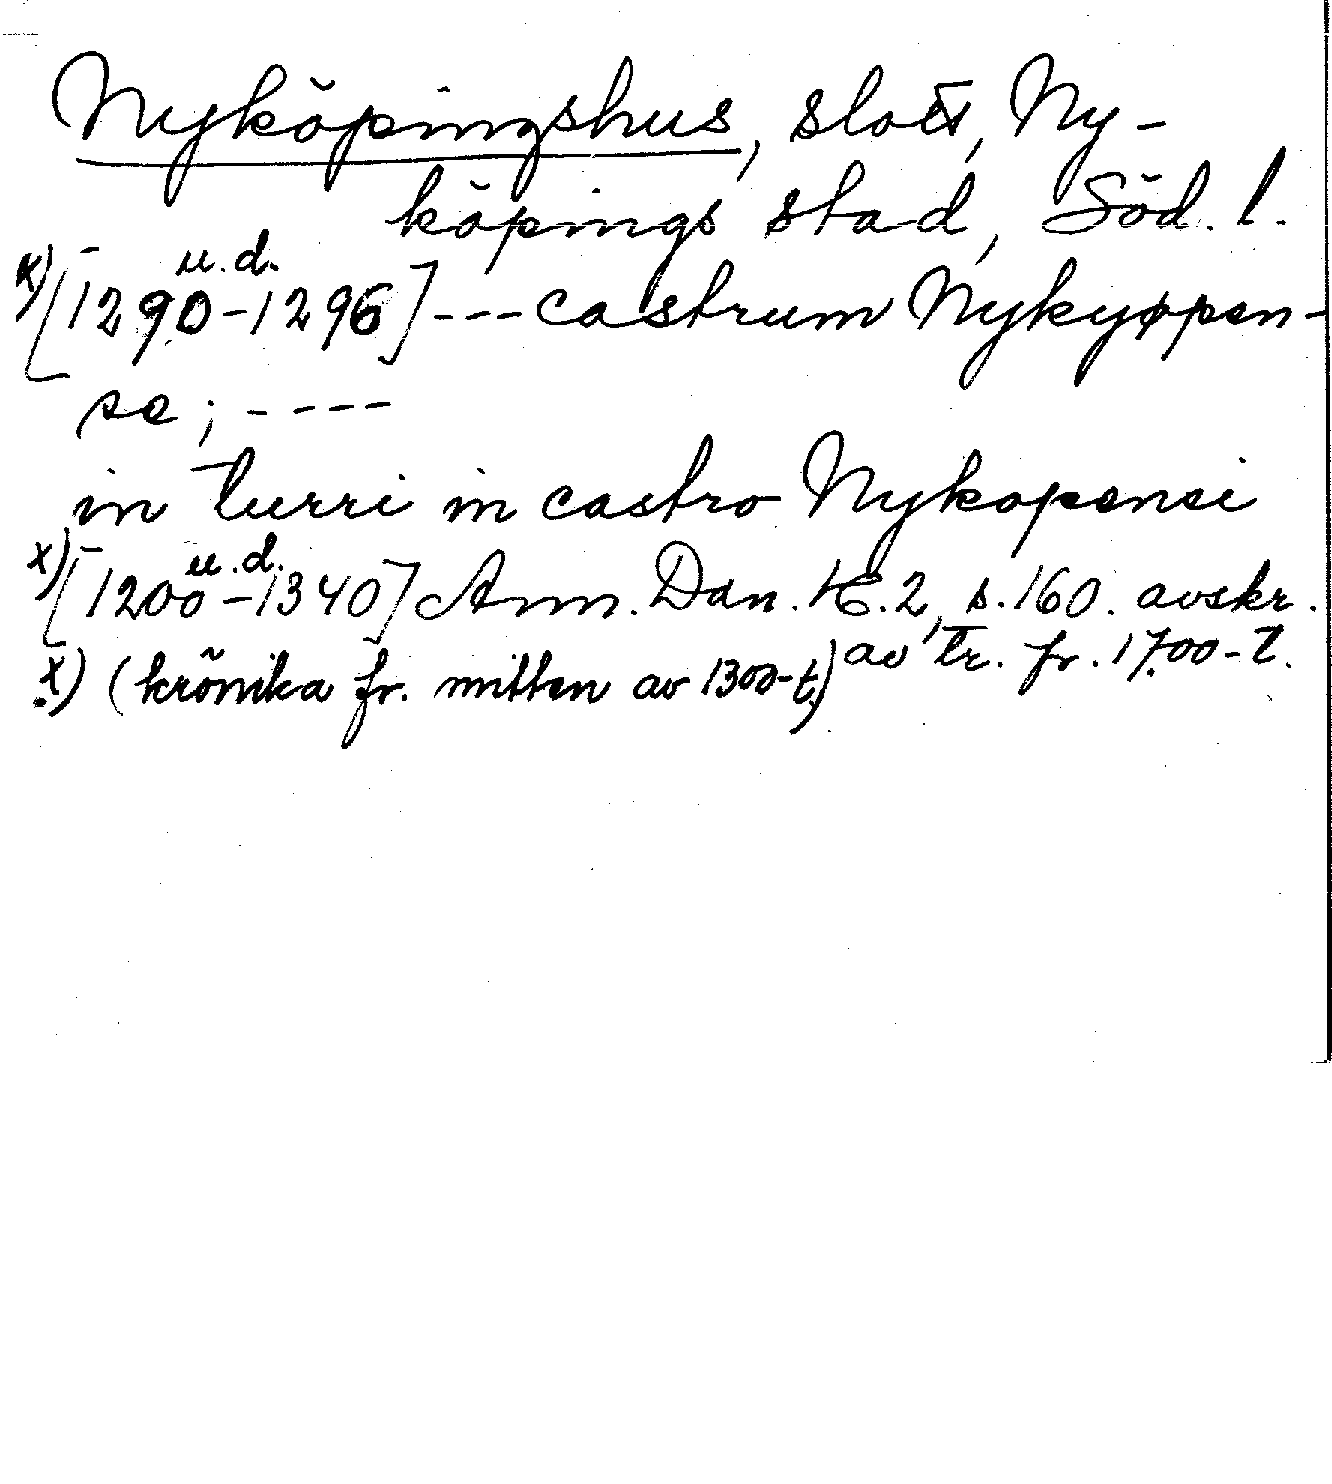 Nyköpingshus, slott, Ny-
köpings stad, Söd. l.
x) [1290 u.d. -1296] --- castrum Nykyøpen-
se; ----
in turri in castro Nykopensi
x) [1200 u.d. -1340] Ann. Dan. 2, s. 160. avskr.
av tr. fr. 1700-t.
x) (krönika fr. mitten av 1300-t.)